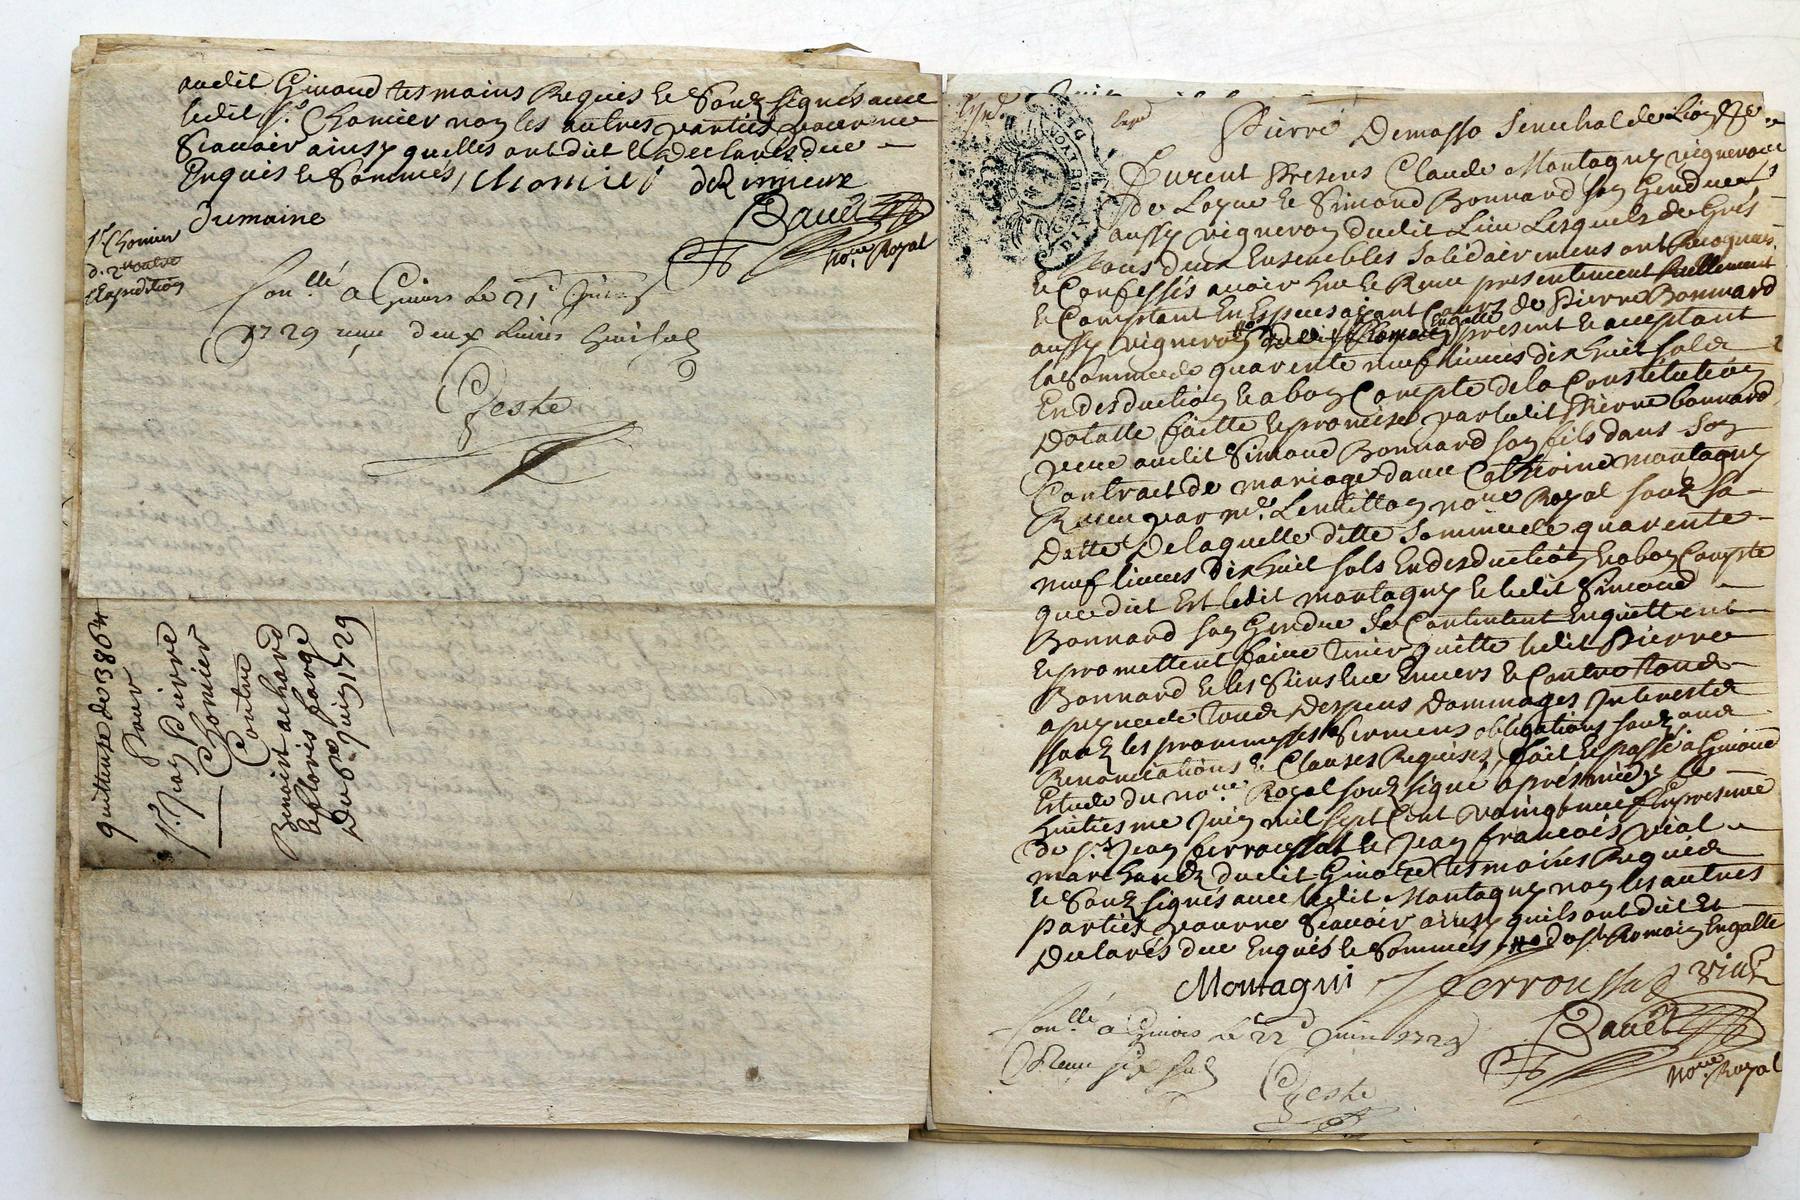 audit Givord tesmoins Requis et Souz signés avec
ledit Sr. Chomier non les autres parties pour ne
Scavoir ainsy quelles ont dit et Declarés due
Enquis et Sommés, Chomier
Dumaine
Bauet
No.re Royal
Sr. Chomier
d. 2
Expedition
Con.llé a Givors Le 21e Juin
1729 reçu deux livres huit sols
Geste
quittense de 380
Pour
Sr. Jean Pierre
Chomier
Contre
Benoist achard
et Floris farge
Du 6me. Juin 1729
Pierre Demasso Senechal de Lion
Furent Presens Claude Montagny vigneron
de Loyre et Simond Bonnard son Gendre
aussy vigneron dudit Lieu Lesquels de Gré
tous deux Ensembles Solidairement ont Recognus
et Confessés avoir heu et Receu presentement Reellement
et Comptant En Especes ayant Cours de Pierre Bonnard
aussy vigneron present et acceptant
la Somme de quarente neuf livres dix huit sols
En desduction et a bon Compte de la Constitution
Dotalle faitte et promise par ledit Pierre bonnard
Pere audit Simond Bonnard son fils dans Son
Contract de mariage avec Catherine montagny
Receu par me. no.re Royal souz Sa
Datte, De laquelle ditte Somme de quarente
neuf livres dix huit sols En desduction et a bon Compte
que dit Est ledit montagny et ledit Simond
Bonnard son Gendre Se Contentent En quittent
et promettent faire tenir quitte ledit Pierre
Bonnard et les Siens Envers et Contre tous
a peyne de tous Despens Dommages Interests
souz les promesses Sermens obligations souz
Renonciations et Clauses Requises, fait et passé a Givord
Estude du no.re Royal souz signé apres midy Le
huitiesme Juin mil sept Cent vaingt neuf En presence
de Sr. Jean ferroussat et Jean francois vial
marchands dudit Givord tesmoins Requis
et Souz signés avec ledit Montagny non les autres
parties pour ne Scavoir ainsy quils ont dit Et
Declarés due Enquis et Sommés, de St. Romain Engalle
Montagni J ferroussat vial
Bauet
no.re Royal
Con.llé a Givors Le 22e Juin 1729
Receu six sols
Geste